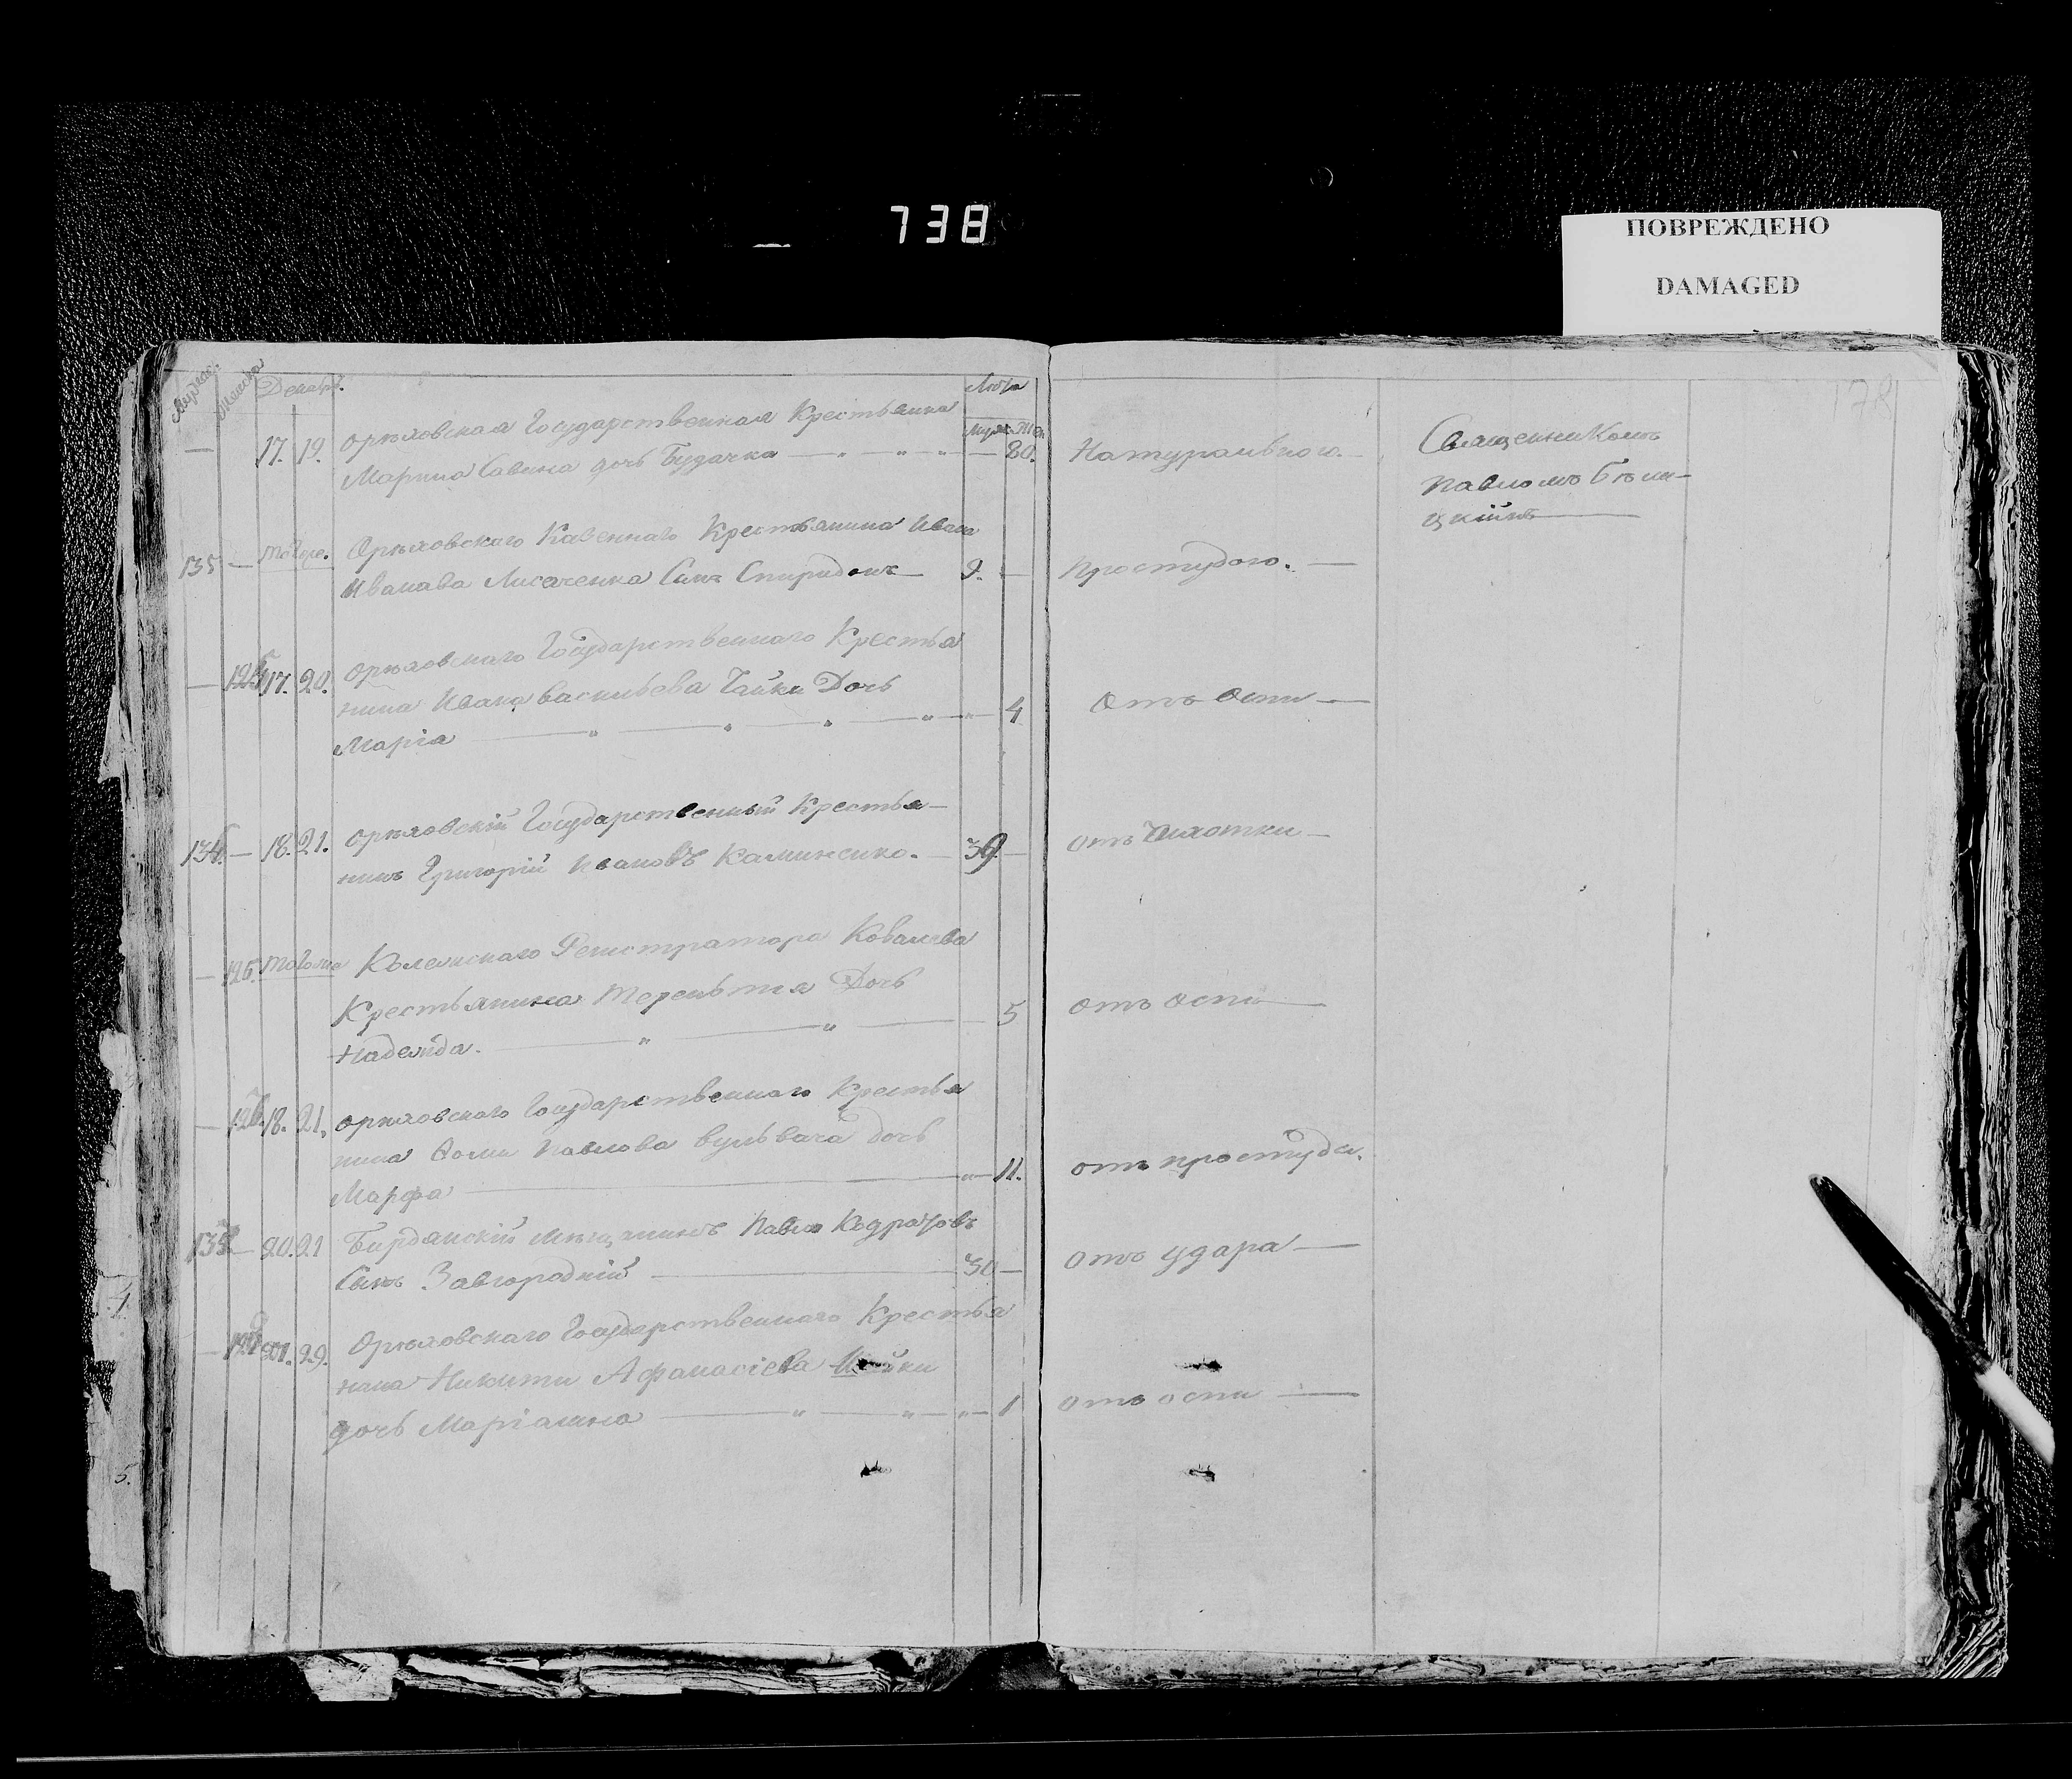 738
ПОВРЕЖДЕНО
DAMAGED
178
Декабр.
Лѣта
17. 19. Орѣховская Государственная Крестьянка
Марина Савина дочь Будачка — 80. Натуральною.
Священникомъ
Павломъ Бѣли-
цкимъ
135 — Того же. Орѣховскаго Казеннаго Крестьянина Ивана
Иванава Лисаченка Синъ Спиридонъ — 9. — Простудою.
17. 20. Орѣховскаго Государственнаго Крестья
нина Ивана Васильева Чайки Дочь
Марія — 4 Отъ оспи —
18. 21. Орѣховскій Государственный Крестья-
нинъ Григорій Ивановъ Каминенко. — 39 — отъ —
Того же Регистратора Ковалева
Крестьянина Терентія Дочь
Надежда. — 5 отъ оспи —
18. 21. Орѣховскаго Государственнаго Крестья
нина Павлова дочь
Марфа — 11. отъ простуди.
20. 21 Мѣщанинъ Павло
Сынъ Завгородній — 30 — отъ удара —
Орѣховскаго Государственнаго Крестья
нина Никити Афанасіева
дочь Маріанна — 1 отъ оспи —
4.
5.